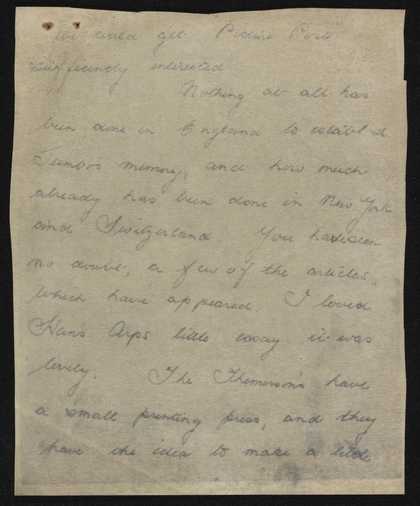 we could get Picture Post
sufficiently interested.
Nothing at all has
been done in England to establish
Jumbo's memory, and how much
already has been done in New York
and Switzerland. You have seen
no doubt, a few of the articles,
which have appeared. I loved
Hans Arps little essay it was
lovely. The Themerson's have
a small printing press, and they
have the idea to make a little